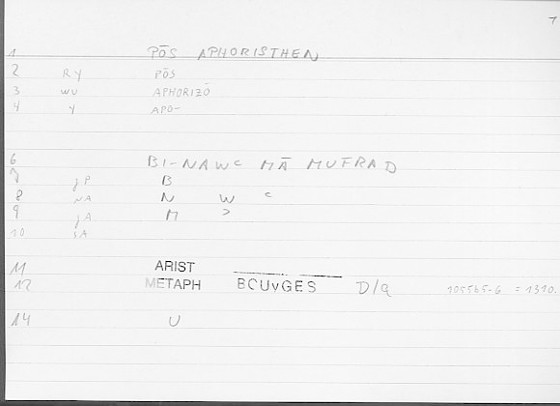 1
1 PŌS APHORISTHEN
2 RY PŌS
3 WV APHORIZŌ
4 Y APO-
6 BI-NAWᶜ MĀ MUFRAD
7 jP B
8 NA N W ᶜ
9 jA M >
10 SA
11 ARIST
12 METAPH BOUYGES D/a = 1310.
14 U